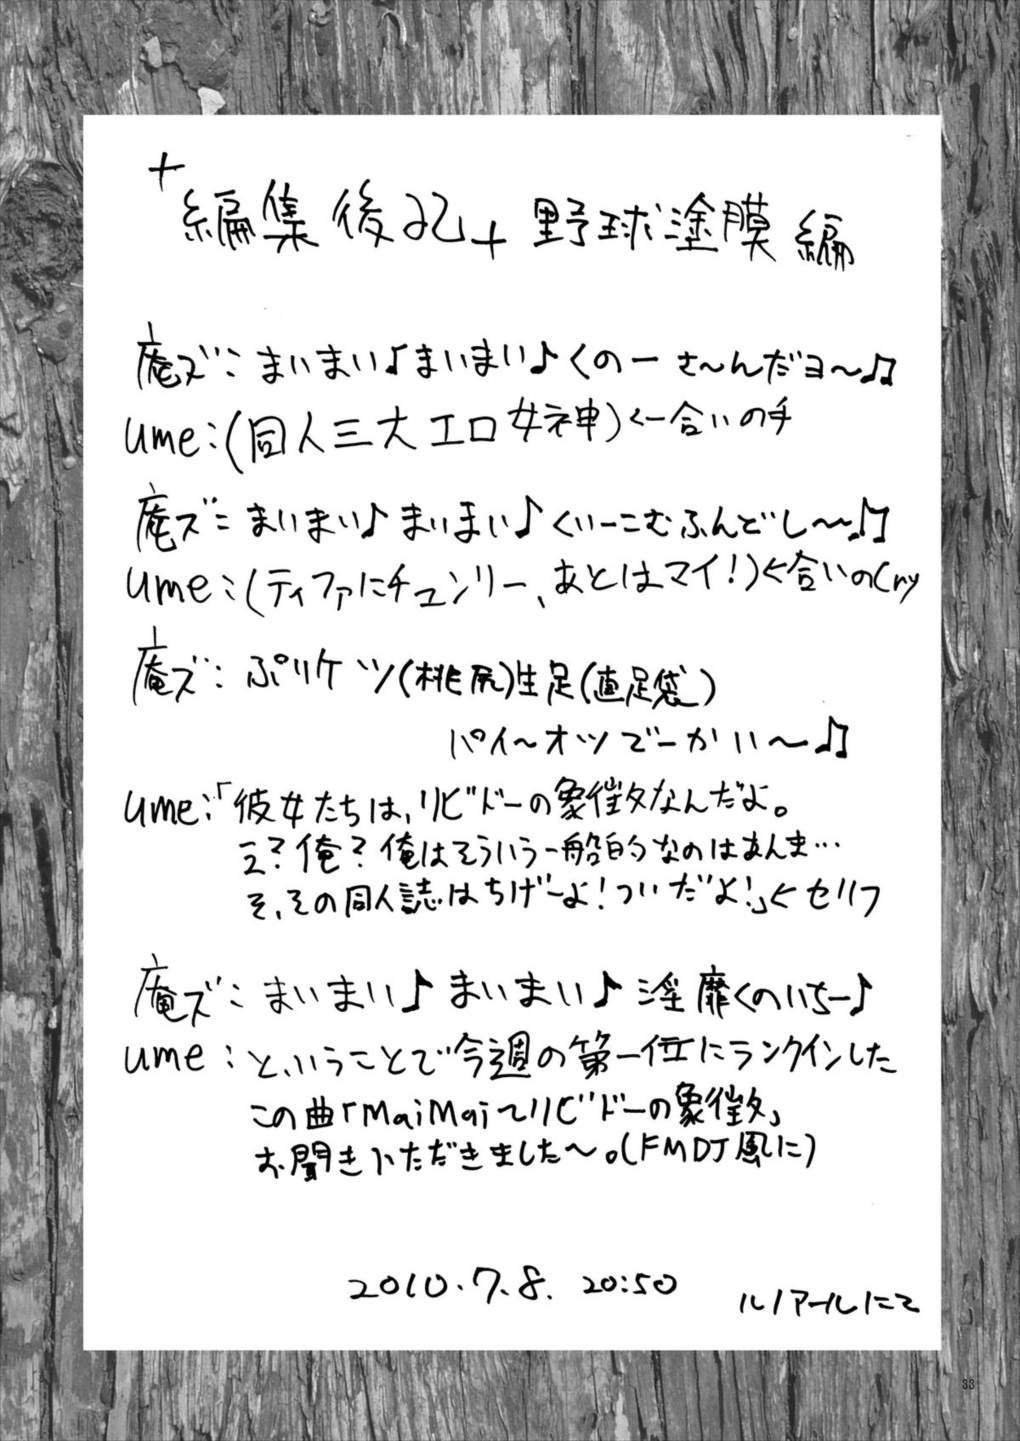 +編集後記+ 野球塗膜編
庵ズ:まいまい♪まいまい♪くのーさ〜んだヨ〜♫
ume:(同人三大エロ女神)←合いの手
庵ズ:まいまい♪まいまい♪くいーこむふんどし〜♫
ume:(ティファにチュンリー、あとはマイ!)←合いのCry
庵ズ:ぷりケツ(桃尻)生足(直足袋)
パイ〜オツでーかいー〜♫
ume:「彼女たちは、リビドーの象徴タなんだよ。
え?俺?俺はそういう一般的なのはあんま…
そ、その同人誌はちげーよ!ついだよ!」←セリフ
庵ズ:まいまい♪まいまい♪淫靡くのいちー♪
ume:と、いうことで今週の第一位にランクインした
この曲「MaiMai〜リビドーの象徴タ」
お聞きいただきました〜。(FMDJ風に)
2010.7.8. 20:50
ルノアールにて
33